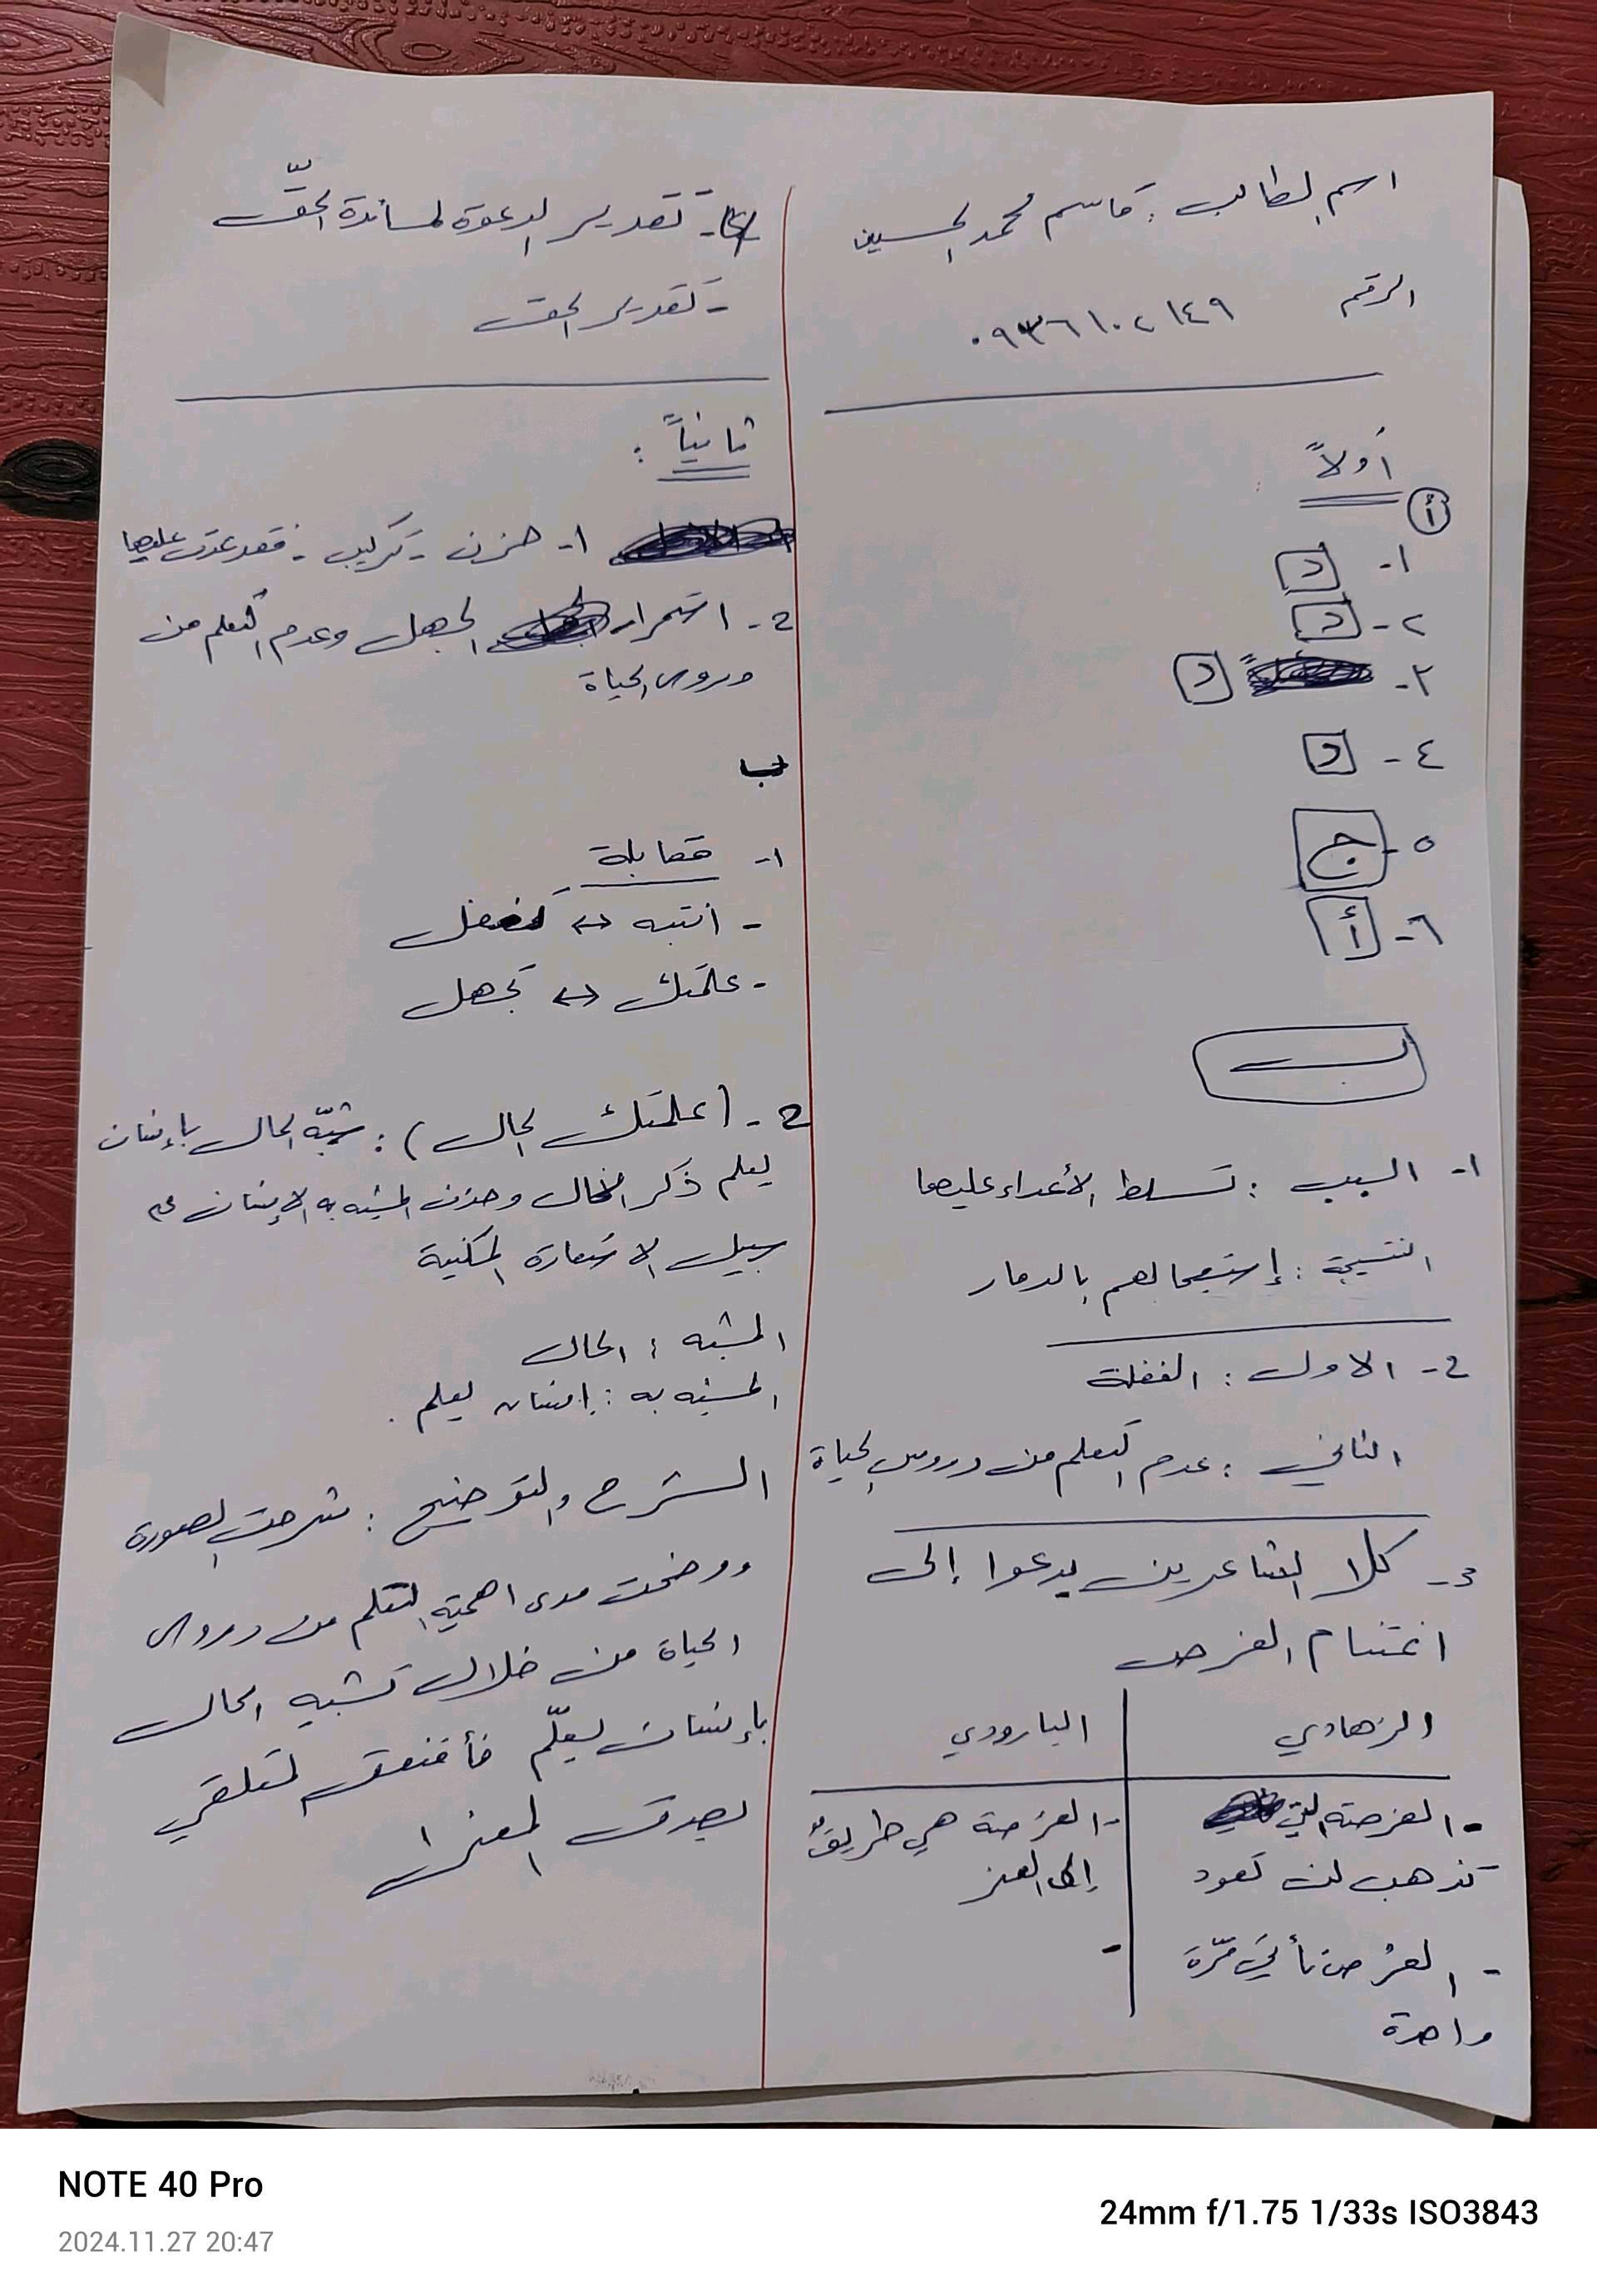 اسم الطالب : قاسم محمد الحسين
الرقم ٠٩٣٦١٠٢١٤٩
أولاً
أ
١- د
٢- د
٣- د
٤- د
٥- ج
٦- أ
ب
١- السبب : تسلط الأعداء عليها
النتيجة : إستعجالهم بالدمار
2- الاول : الغفلة
الثاني : عدم التعلم من دروس الحياة
3- كلا الشاعرين يدعوا إلى
اغتنام الفرص
الزهاوي
- الفرصة التي
تذهب لن تعود
- الفرص تأتي مرّة
واحدة
البارودي
- الفرصة هي طريق
إلى العز
-
- تقدير الدعوة لمساندة الحقّ
- تقدير الحق
ثانياً :
١- حزن - تركيب - فقد عدت عليها
2- استمرار الجهل وعدم التعلم من
دروس الحياة
ب
١- مقابلة
- انتبه ↔ تغفل
- علمتك ↔ تجهل
2- (علمتك الحال) : شبّه الحال بإنسان
يعلم ذكر الحال وحذف المشبه به الإنسان على
سبيل الاستعارة المكنية
المشبه : الحال
المشبه به : إنسان يعلم .
الشرح والتوضيح : شرحت الصورة
ووضحت مدى اهمية التعلم من دروس
الحياة من خلال تشبيه الحال
بإنسان يعلّم فأقنعت المتلقي
بصدق المغزا
NOTE 40 Pro
2024.11.27 20:47
24mm f/1.75 1/33s ISO3843